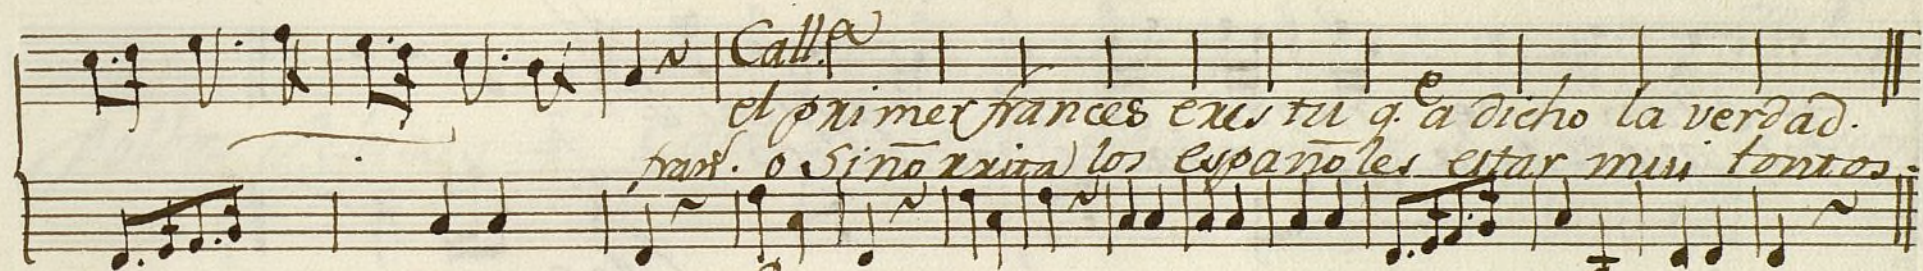 Call.e
el primer frances eres tu q.e a dicho la verdad.
frans. o Sinõrrita los españoles estar mui tontos.